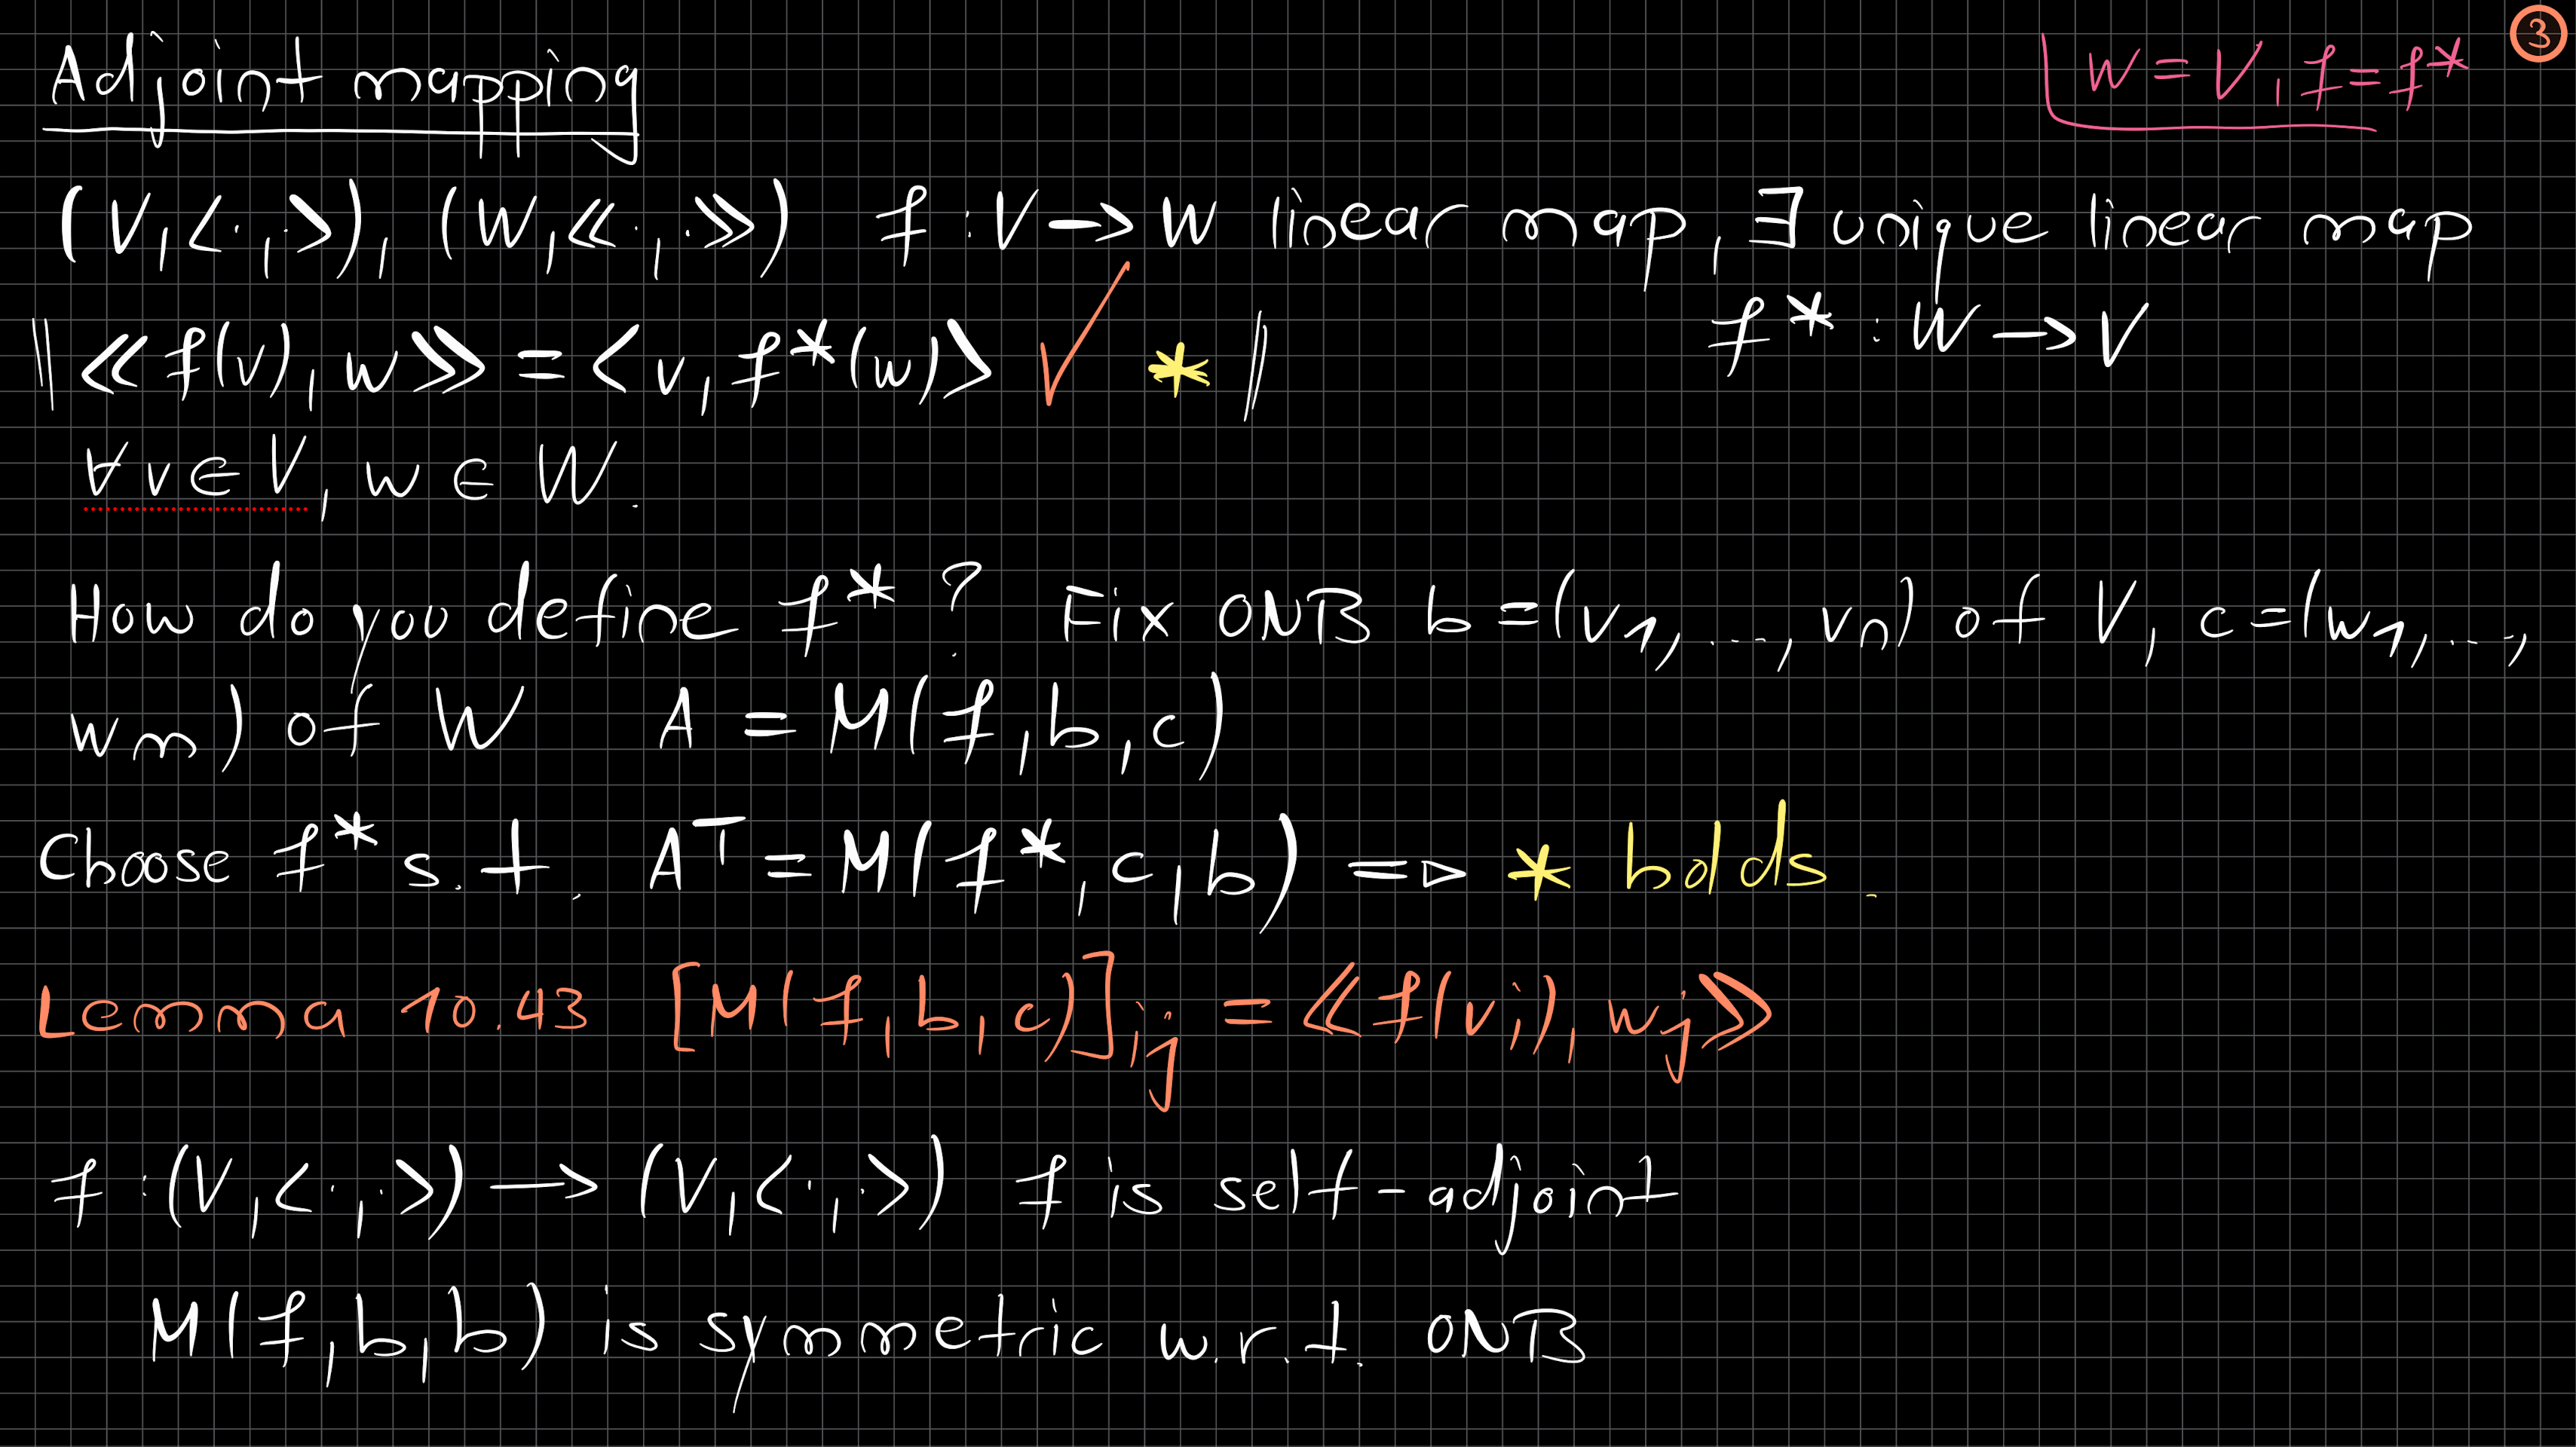 ③
Adjoint mapping
W = V, f = f*
(V, <·,·>), (W, ≪·,·≫) f : V → W linear map, ∃ unique linear map
f* : W → V
‖ ≪f(v), w≫ = <v, f*(w)> ✓ * ‖
∀ v ∈ V, w ∈ W.
How do you define f* ? Fix ONB b = (v₁, ..., vₙ) of V, c = (w₁, ...,
wₘ) of W A = M(f, b, c)
Choose f* s.t. Aᵀ = M(f*, c, b) ⇒ * holds.
Lemma 10.43 [M(f, b, c)]ᵢⱼ = ≪f(vᵢ), wⱼ≫
f : (V, <·,·>) → (V, <·,·>) f is self-adjoint
M(f, b, b) is symmetric w.r.t. ONB